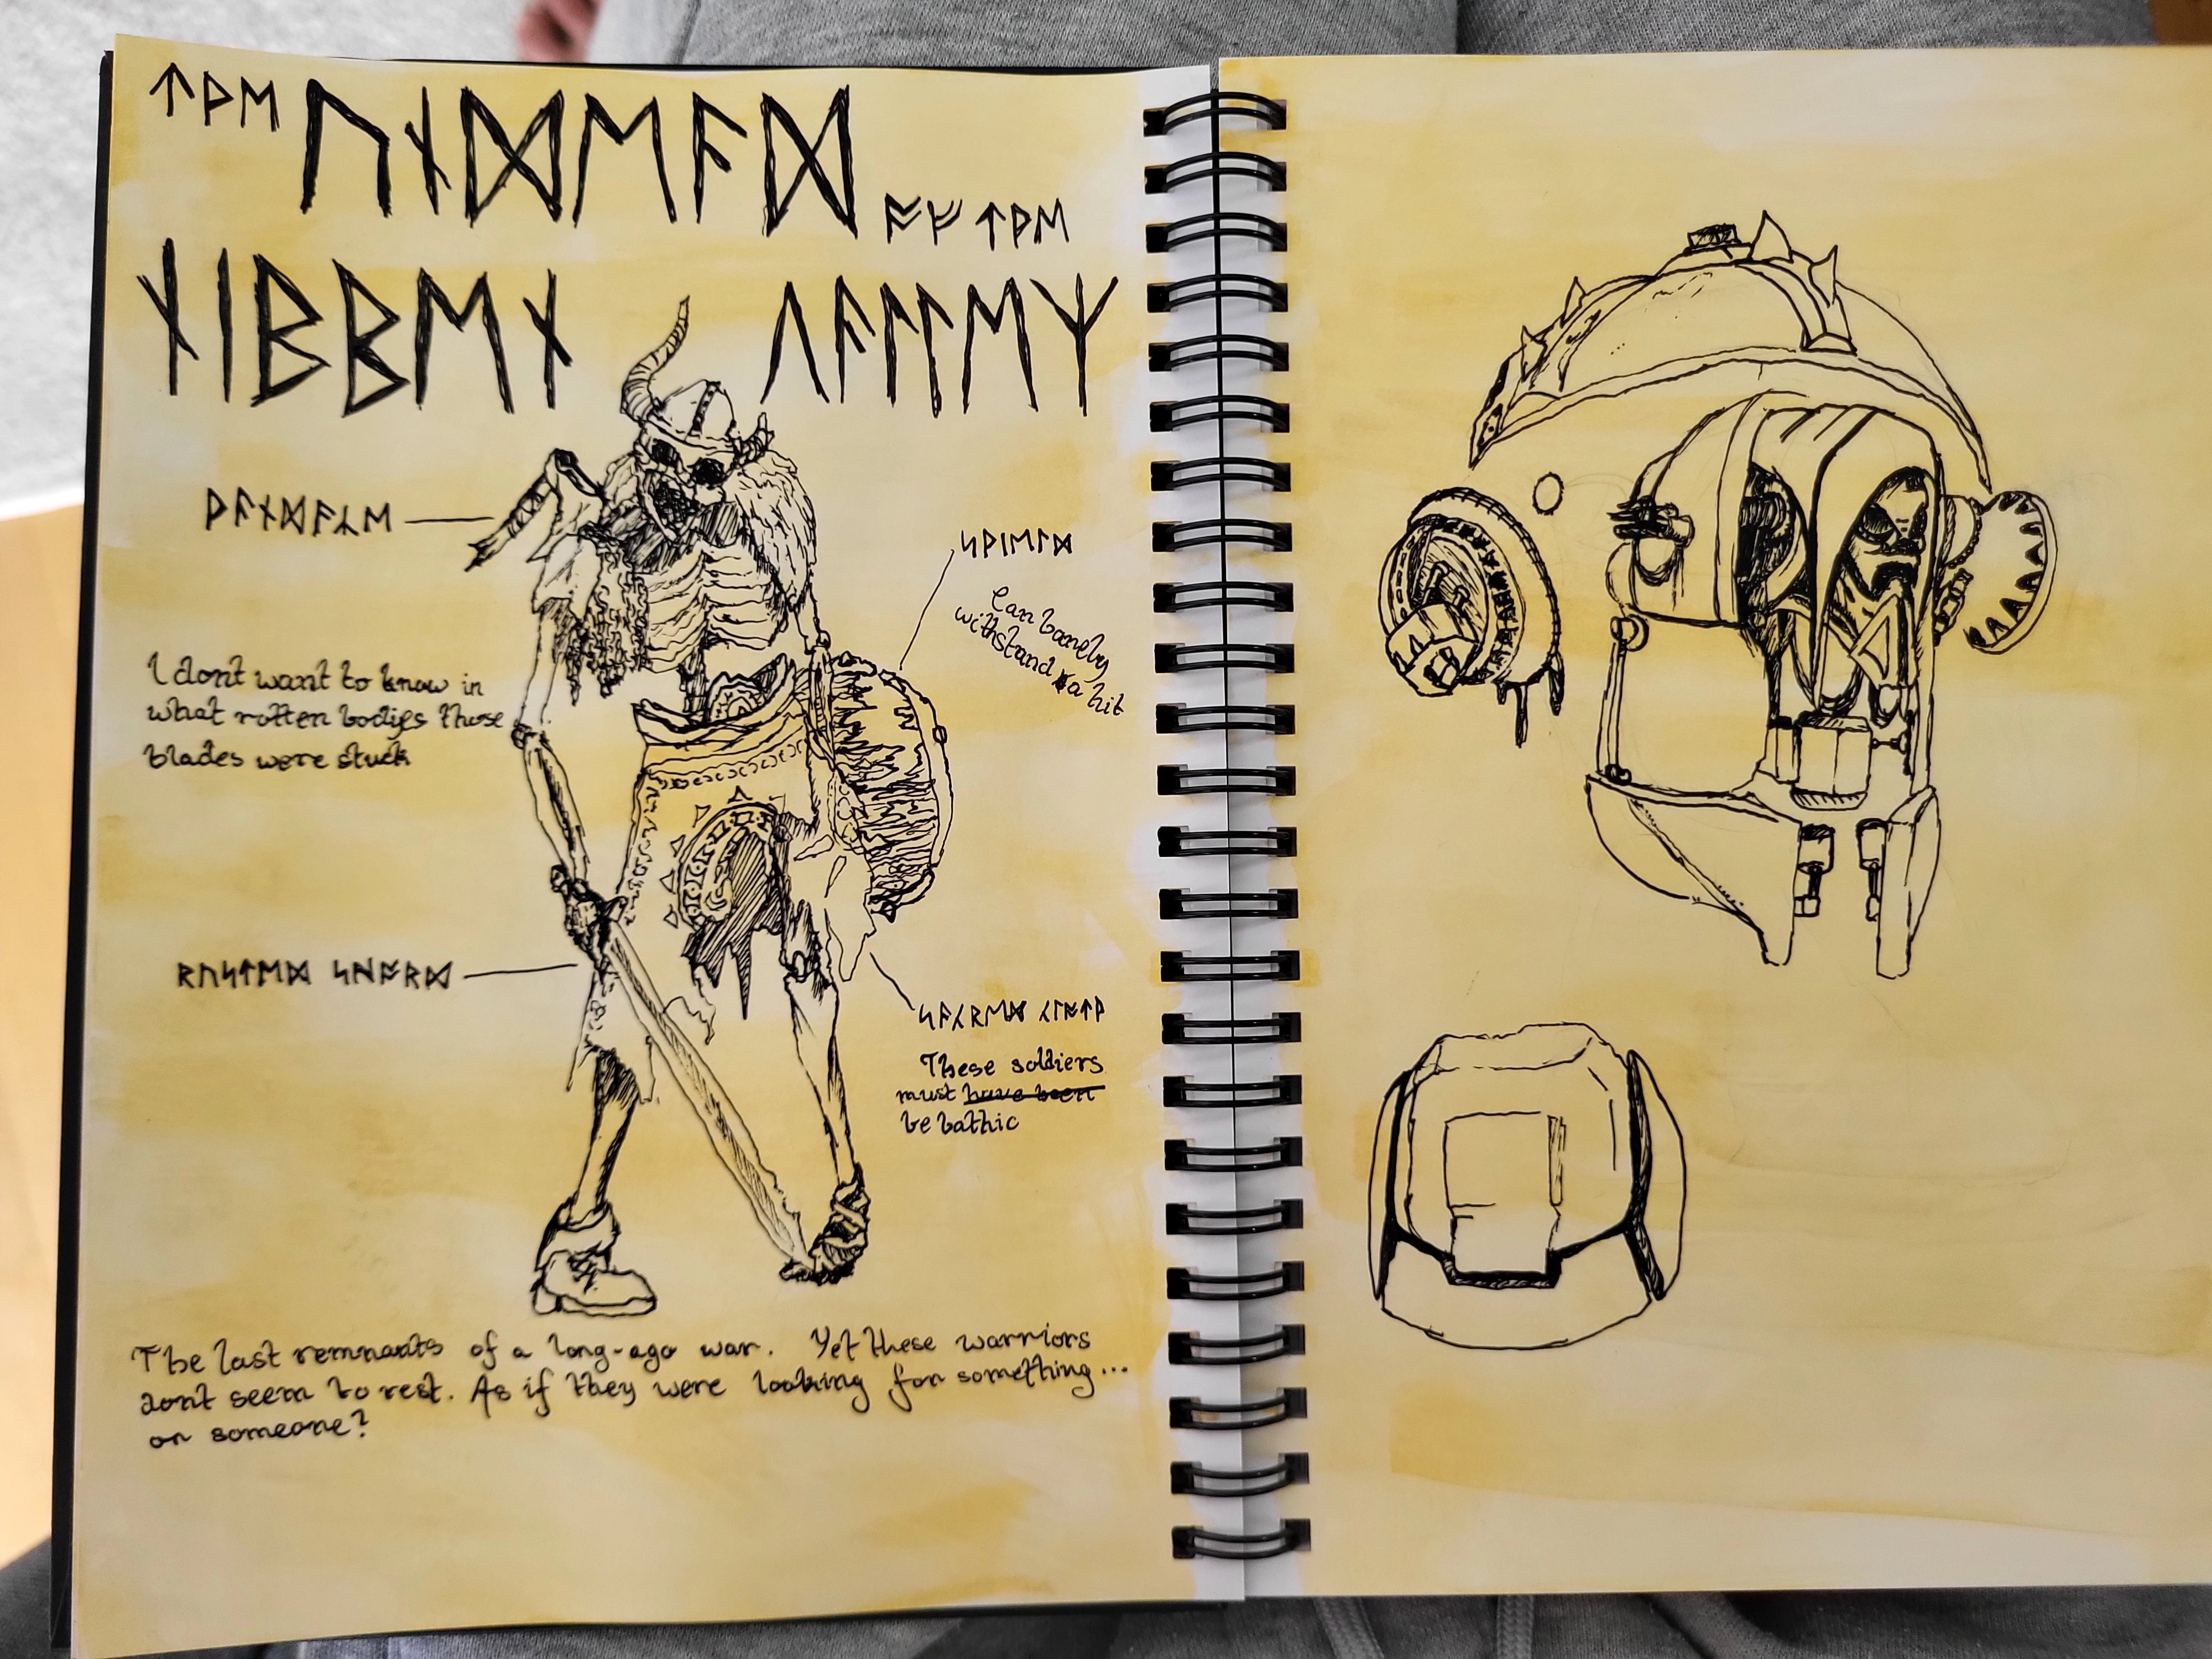 ᛏᚦᛖ ᚢᚾᛞᛖᚨᛞ ᚩᚠ ᛏᚦᛖ
ᚾᛁᛒᛒᛖᚾ ᚢᚨᛚᛚᛖᛉ
ᛋᚦᛁᛖᛚᛞ
Can barely
withstand a hit
I dont want to know in
what rotten bodies those
blades were stuck
ᚱᚢᛋᛏᛖᛞ ᛋᚺᚩᚱᛞ
ᛋᚨᚲᚱᛖᛞ ᚲᛚᚩᛏᚦ
These soldiers
must have been
be bathic
The last remnants of a long-ago war. Yet these warriors
dont seem to rest. As if they were looking for something...
or someone?